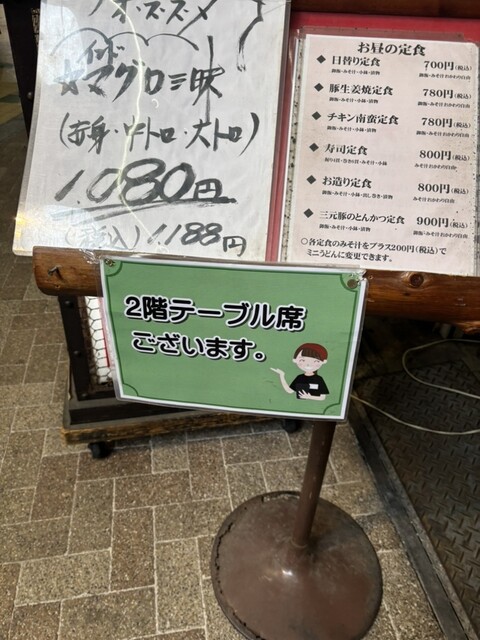 オススメ
★インドマグロ三昧
(赤身・中トロ・大トロ)
1,080円
(税込)1,188円
お昼の定食
◆日替り定食 700円(税込)
御飯・みそ汁・小鉢・漬物
◆豚生姜焼定食 780円(税込)
御飯・みそ汁・小鉢・漬物
◆チキン南蛮定食 780円(税込)
御飯・みそ汁・小鉢・漬物
◆寿司定食 800円(税込)
◆お造り定食 800円(税込)
◆三元豚のとんかつ定食 900円(税込)
御飯・みそ汁・小鉢・漬物
○各定食のみそ汁をプラス200円(税込)で
ミニうどんに変更できます。
2階テーブル席
ございます。